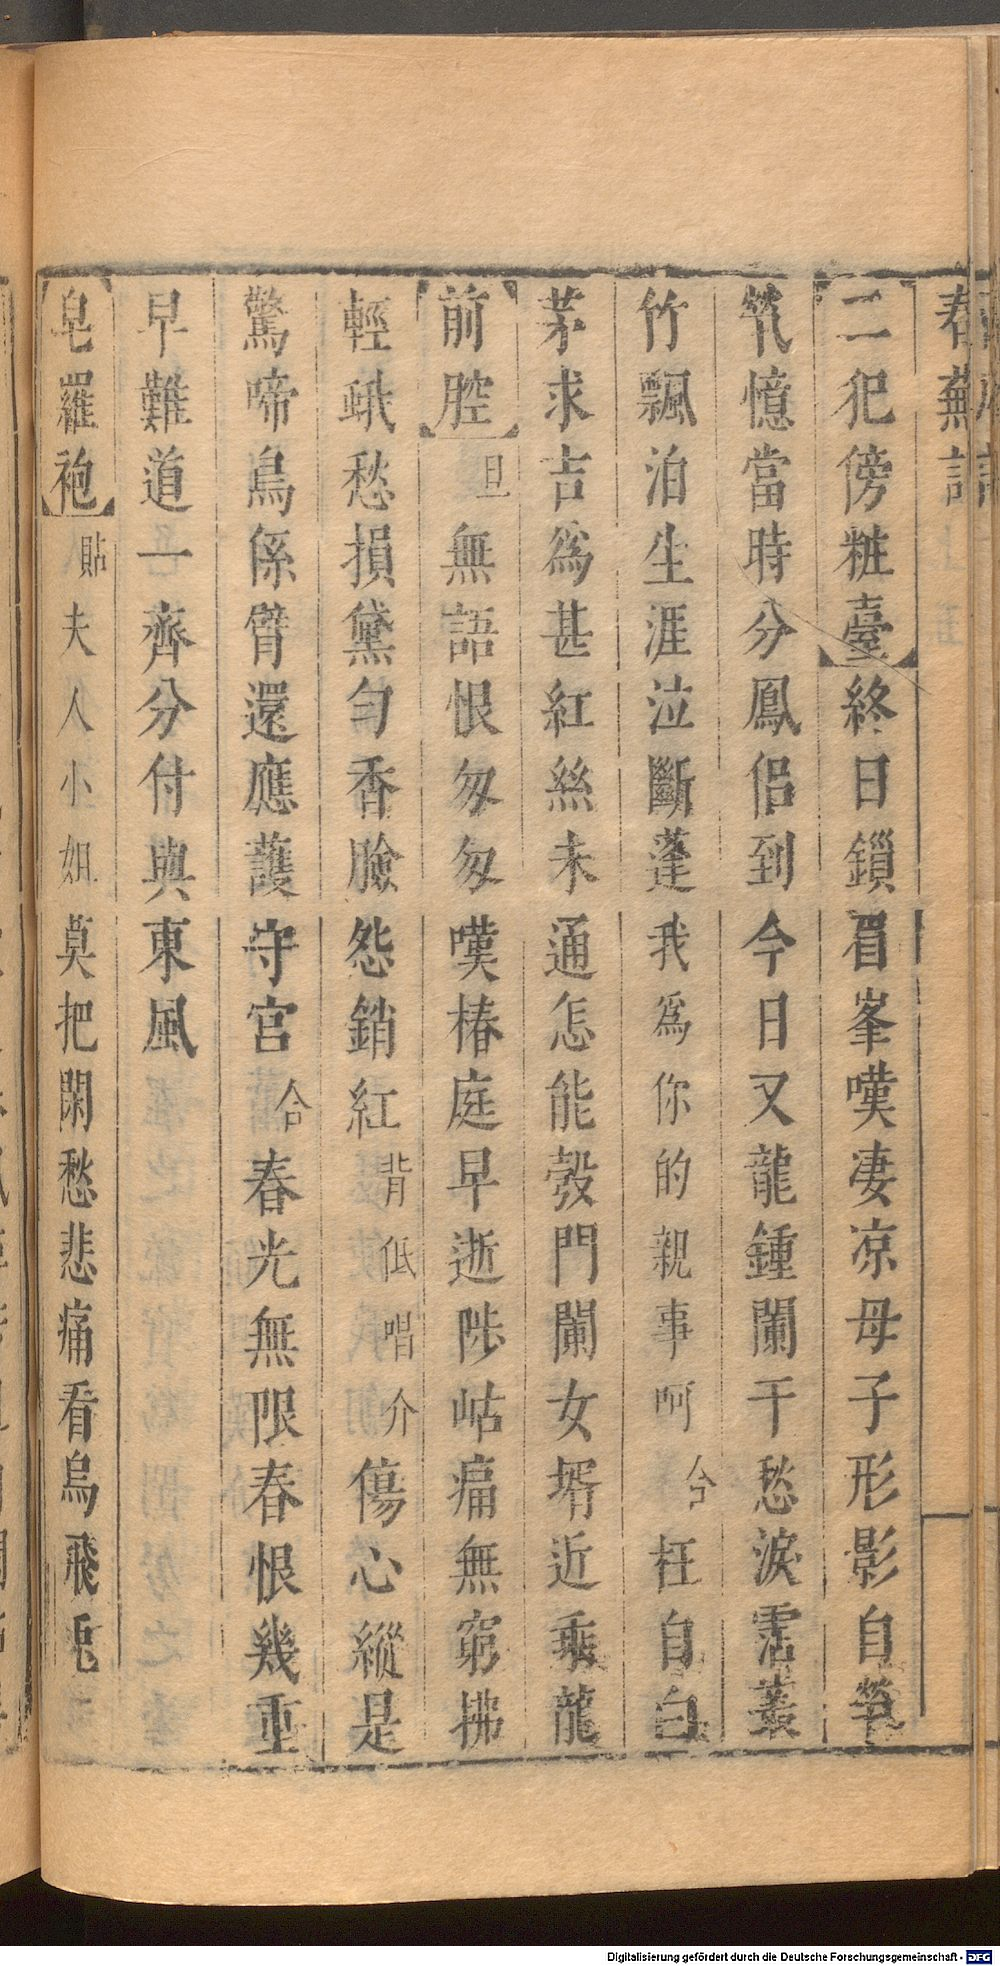 春蕪記
二犯傍粧臺終日鎖眉峯嘆凄凉母子形影自煢
煢憶當時分鳳侶到今日又龍鍾闌干愁淚霑叢
竹飄泊生涯泣斷蓬我爲你的親事呵合枉自白
茅求吉爲甚紅絲未通怎能彀門闌女壻近乘龍
前腔旦無語恨匆匆嘆椿庭早逝陟岵痛無窮拂
輕蛾愁損黛勻香臉怨銷紅背低唱介傷心縱是
驚啼鳥係臂還應護守宮合春光無限春恨幾重
早難道一齊分付與東風
皂羅袍貼夫人小姐莫把閑愁悲痛看烏飛兎
Digitalisierung gefördert durch die Deutsche Forschungsgemeinschaft - DFG